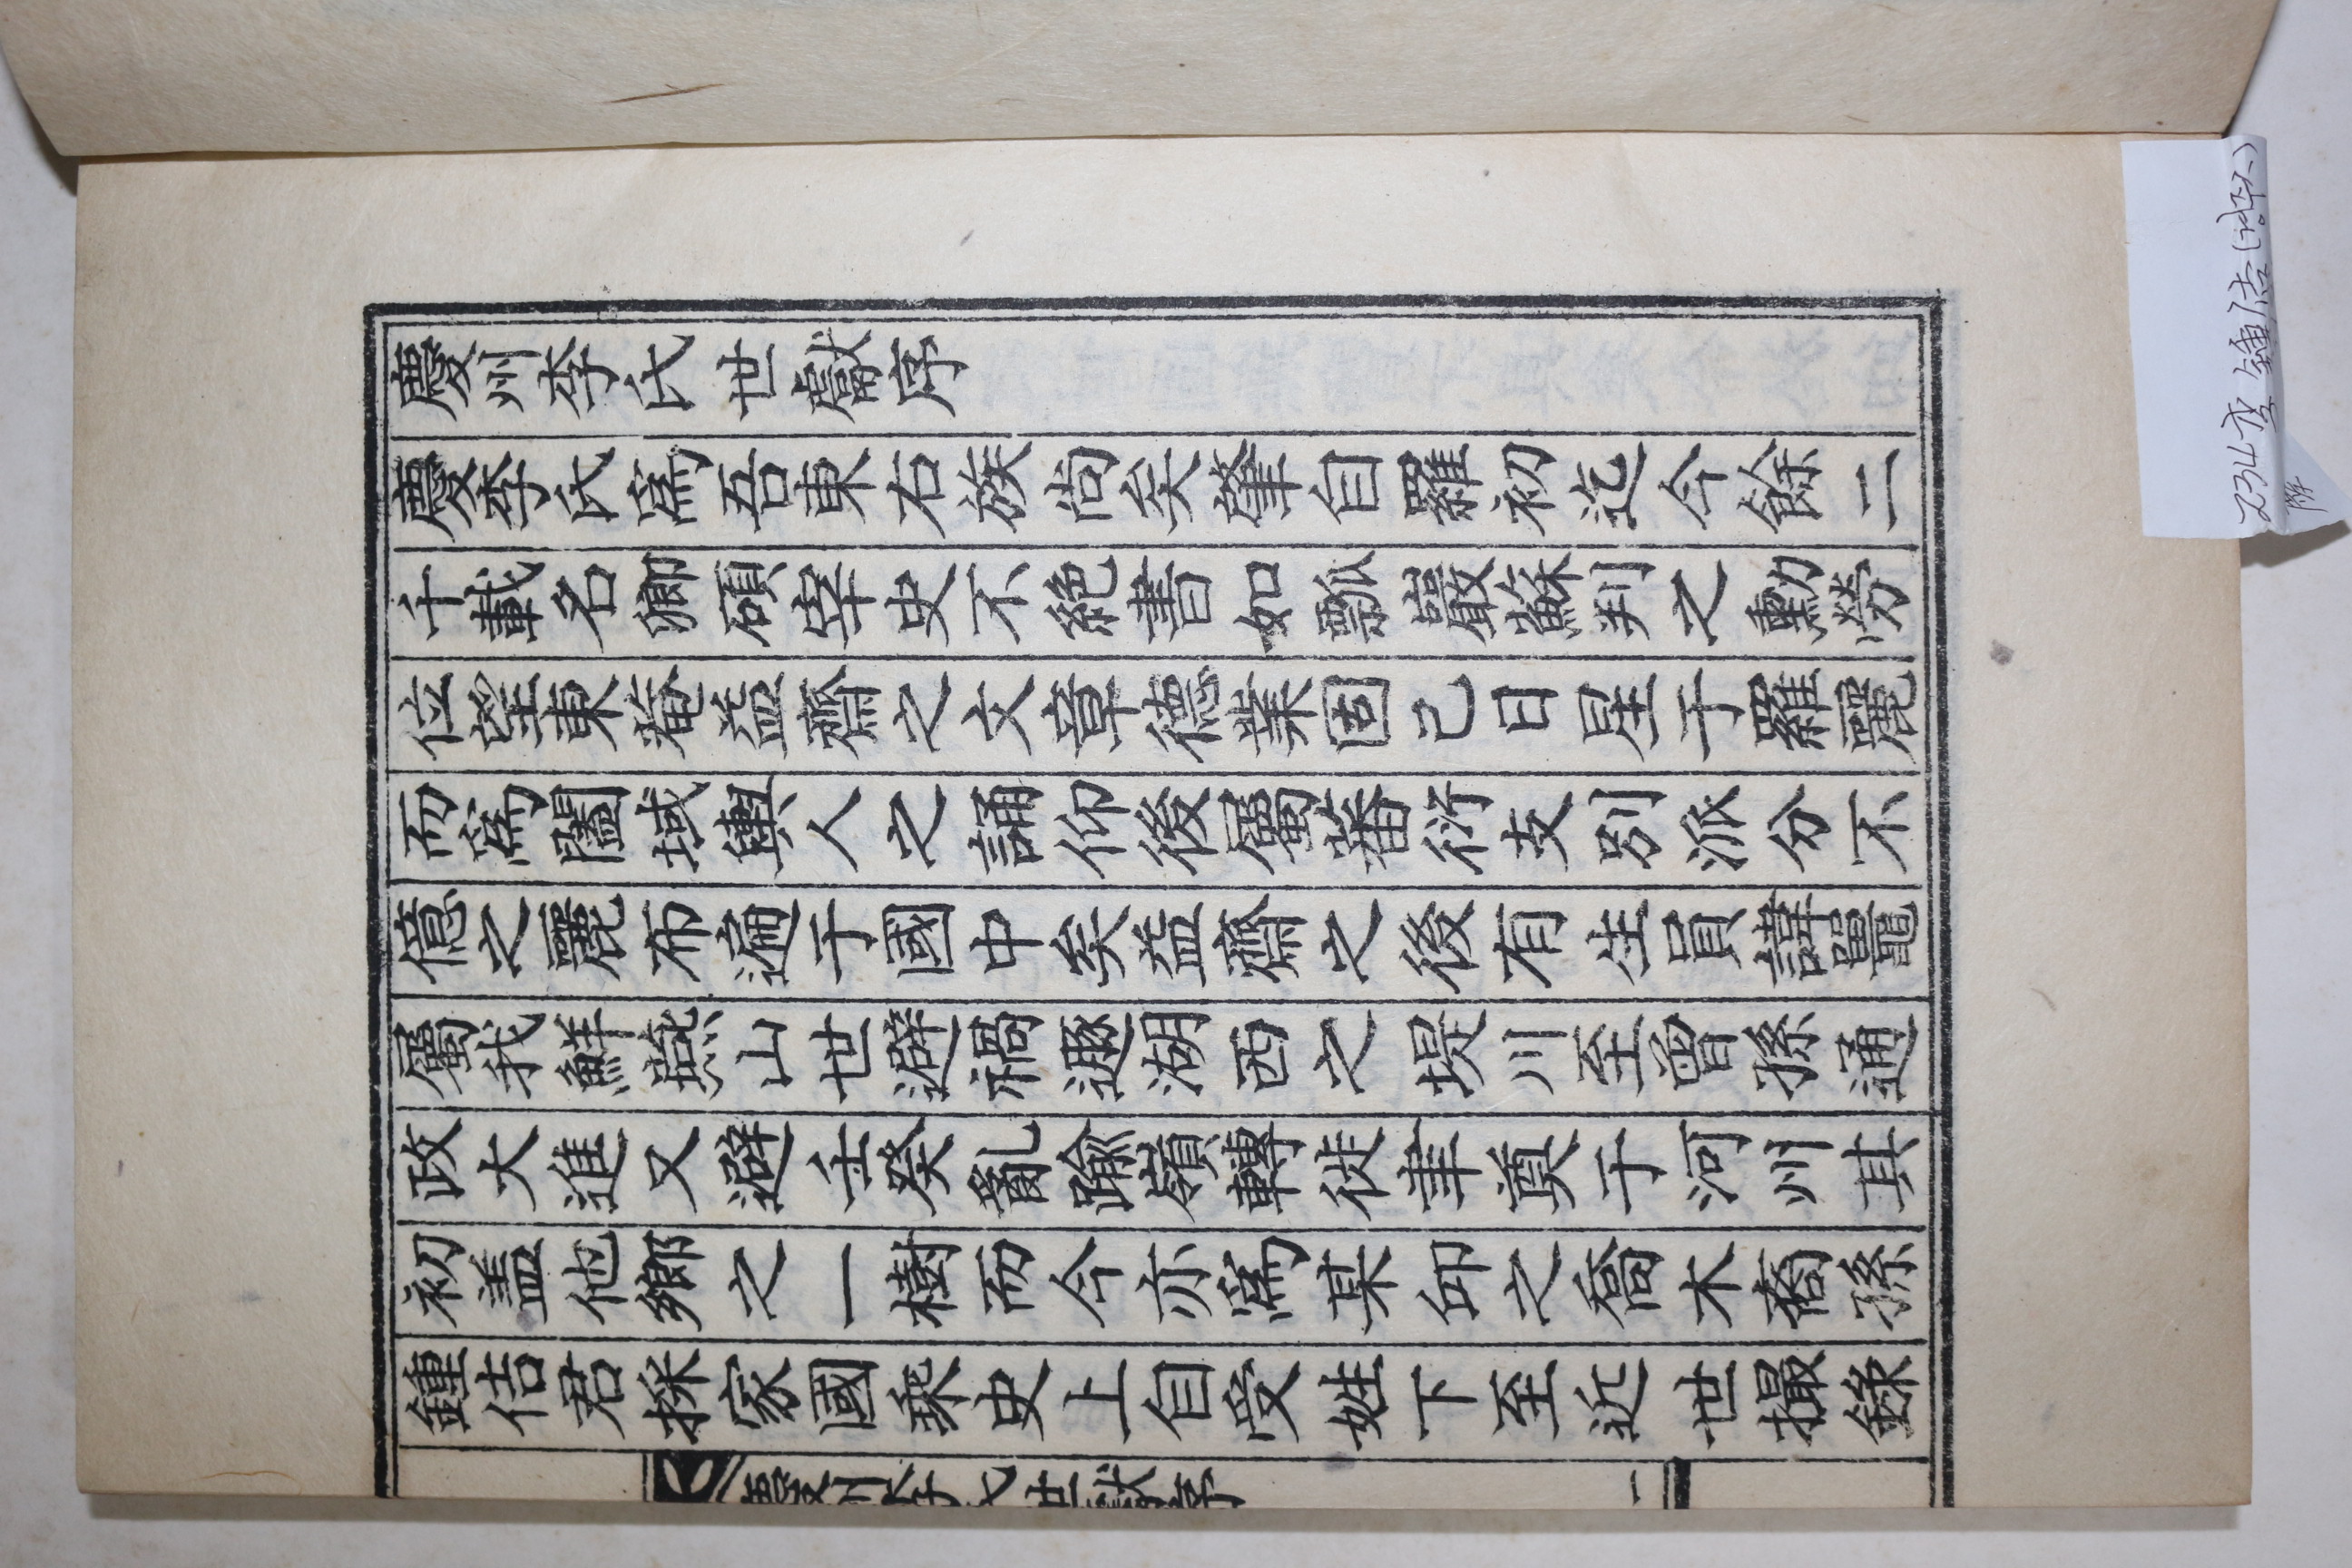 慶州李氏世獻序
慶李氏爲吾東右族尙矣肇自羅初迄今餘二
千載名卿碩宰史不絶書如瓢巖蘇判之勳勞
位望東菴益齋之文章德業固已日星于羅麗
而爲闔域輿人之誦仰後屬蕃衍支別派分不
億之麗布遍于國中矣益齋之後有生員諱鼉
屬我鮮燕山世避禍遯湖西之堤川至曾孫通
政大進又避壬癸亂踰嶺轉徙聿奠于河州其
初盖他鄉之一樹而今亦爲某邱之喬木裔孫
鍾佶君採家國乘史上自受姓下至近世撮錄
慶州李氏世獻序
一
234 李鍾佶(경주人)